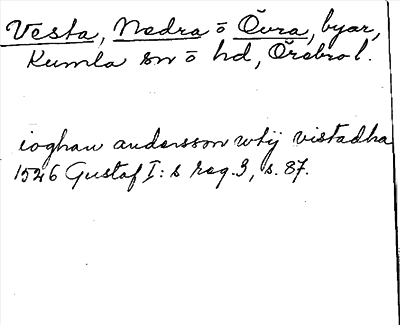 Vesta, Nedra o Övra, byar,
Kumla sn o hd, Örebro l.
ioghan andersson wtij vistadha
1546 Gustaf I:s reg. 3, s. 87.